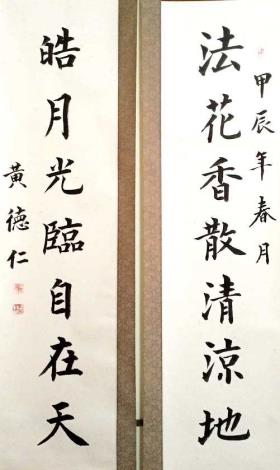 甲辰年春月
法花香散清涼地
皓月光臨自在天
黃德仁